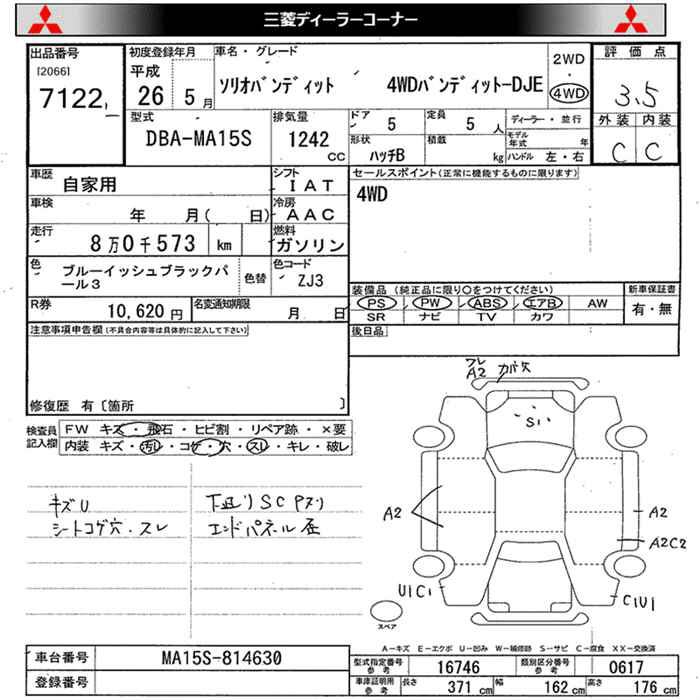 三菱ディーラーコーナー
出品番号
[2066]
7122
初度登録年月
平成
26 5月
車名・グレード
ソリオバンディット 4WDバンディット-DJE
2WD
・
4WD
評価点
3.5
外装 内装
C C
型式
DBA-MA15S
排気量
1242
cc
ドア
5
定員
5 人
形状
ハッチB
積載
kg
ディーラー・並行
モデル年式 年
ハンドル 左・右
車歴
自家用
シフト
IAT
セールスポイント(正常に機能するものに限ります)
4WD
車検
年 月( 日)
冷房
AAC
走行
8万0千573 km
燃料
ガソリン
色
ブルーイッシュブラックパール3
色替
色コード
ZJ3
R券
10,620円
名変通知期限
月 日
装備品(純正品に限り○をつけてください)
PS PW ABS エアB AW
SR ナビ TV カワ
新車保証書
有・無
注意事項申告欄(不具合内容等は具体的に記入して下さい)
後日品
修復歴 有〔箇所 〕
検査員記入欄
FW キズ・飛石・ヒビ割・リペア跡・×要
内装 キズ・汚れ・コゲ・穴・スレ・キレ・破レ
キズU
シートコゲ穴・スレ
下回りSCPヌリ
エンドパネル歪
A2 カバ欠
S1
A2
A2
A2C2
U1C1
C1U1
スペア
A-キズ E-エクボ U-凹み W-補修跡 S-サビ C-腐食 XX-交換済
車台番号
MA15S-814630
登録番号
型式指定番号 参考
16746
類別区分番号 参考
0617
車庫証明用 参考
長さ 371cm
幅 162cm
高さ 176cm